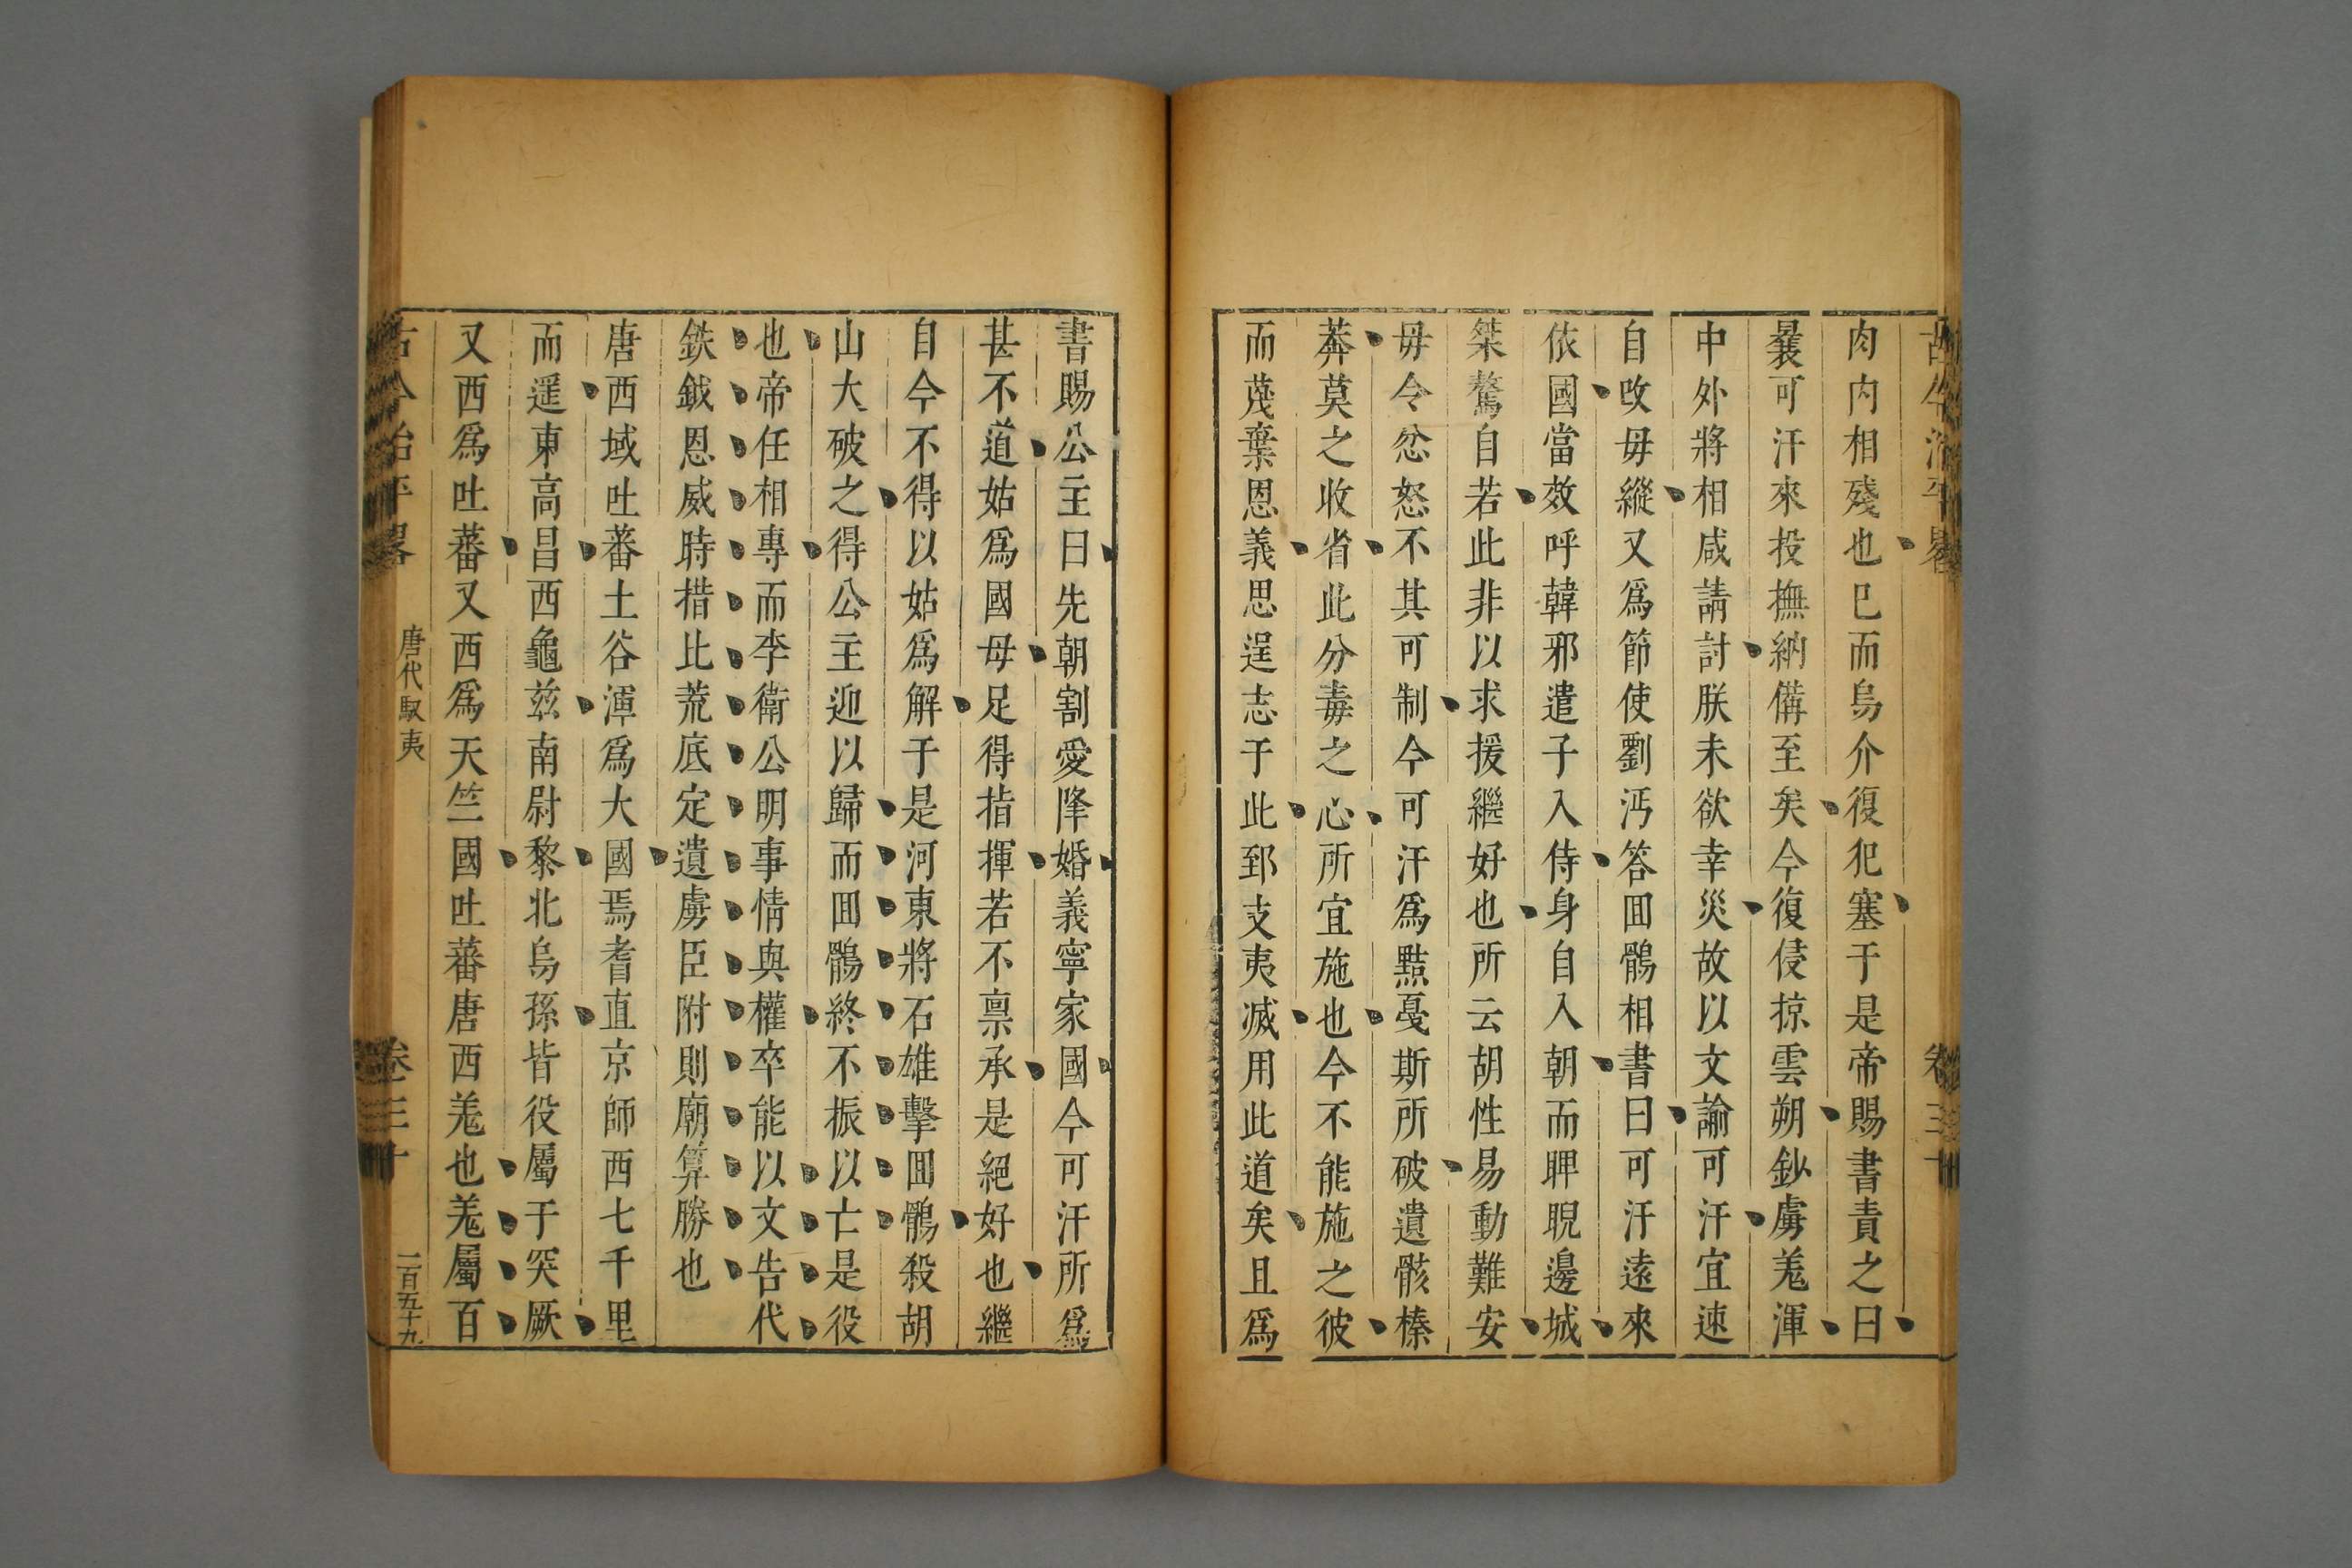 古今治平畧
卷三十
肉肉相殘也已而烏介復犯塞于是帝賜書責之曰
曩可汗來投撫納備至矣今復侵掠雲朔鈔虜羗渾
中外將相咸請討朕未欲幸災故以文諭可汗宜速
自改毋縱又爲節使劉沔答囬鶻相書曰可汗遠來
依國當效呼韓邪遣子入侍身自入朝而睥睨邊城
桀驁自若此非以求援繼好也所云胡性易動難安
毋令忿怒不其可制今可汗爲黠戞斯所破遺骸榛
莽莫之收省此分毒之心所宜施也今不能施之彼
而蔑棄恩義思逞志于此郅支夷滅用此道矣且爲
書賜公主曰先朝割愛降婚義寧家國今可汗所爲
甚不道姑爲國毋足得指揮若不禀承是絕好也繼
自今不得以姑爲解于是河東將石雄擊囬鶻殺胡
山大破之得公主迎以歸而囬鶻終不振以亡是役
也帝任相專而李衛公明事情與權卒能以文告代
鈇鉞恩威時措比荒底定遺虜臣附則廟算勝也
唐西域吐蕃土谷渾爲大國焉耆直京師西七千里
而遥東高昌西龜兹南尉黎北烏孫皆役屬于突厥
又西爲吐蕃又西爲天竺國吐蕃唐西羗也羗屬百
古今治平畧
唐代馭夷
卷三十
二百五十九